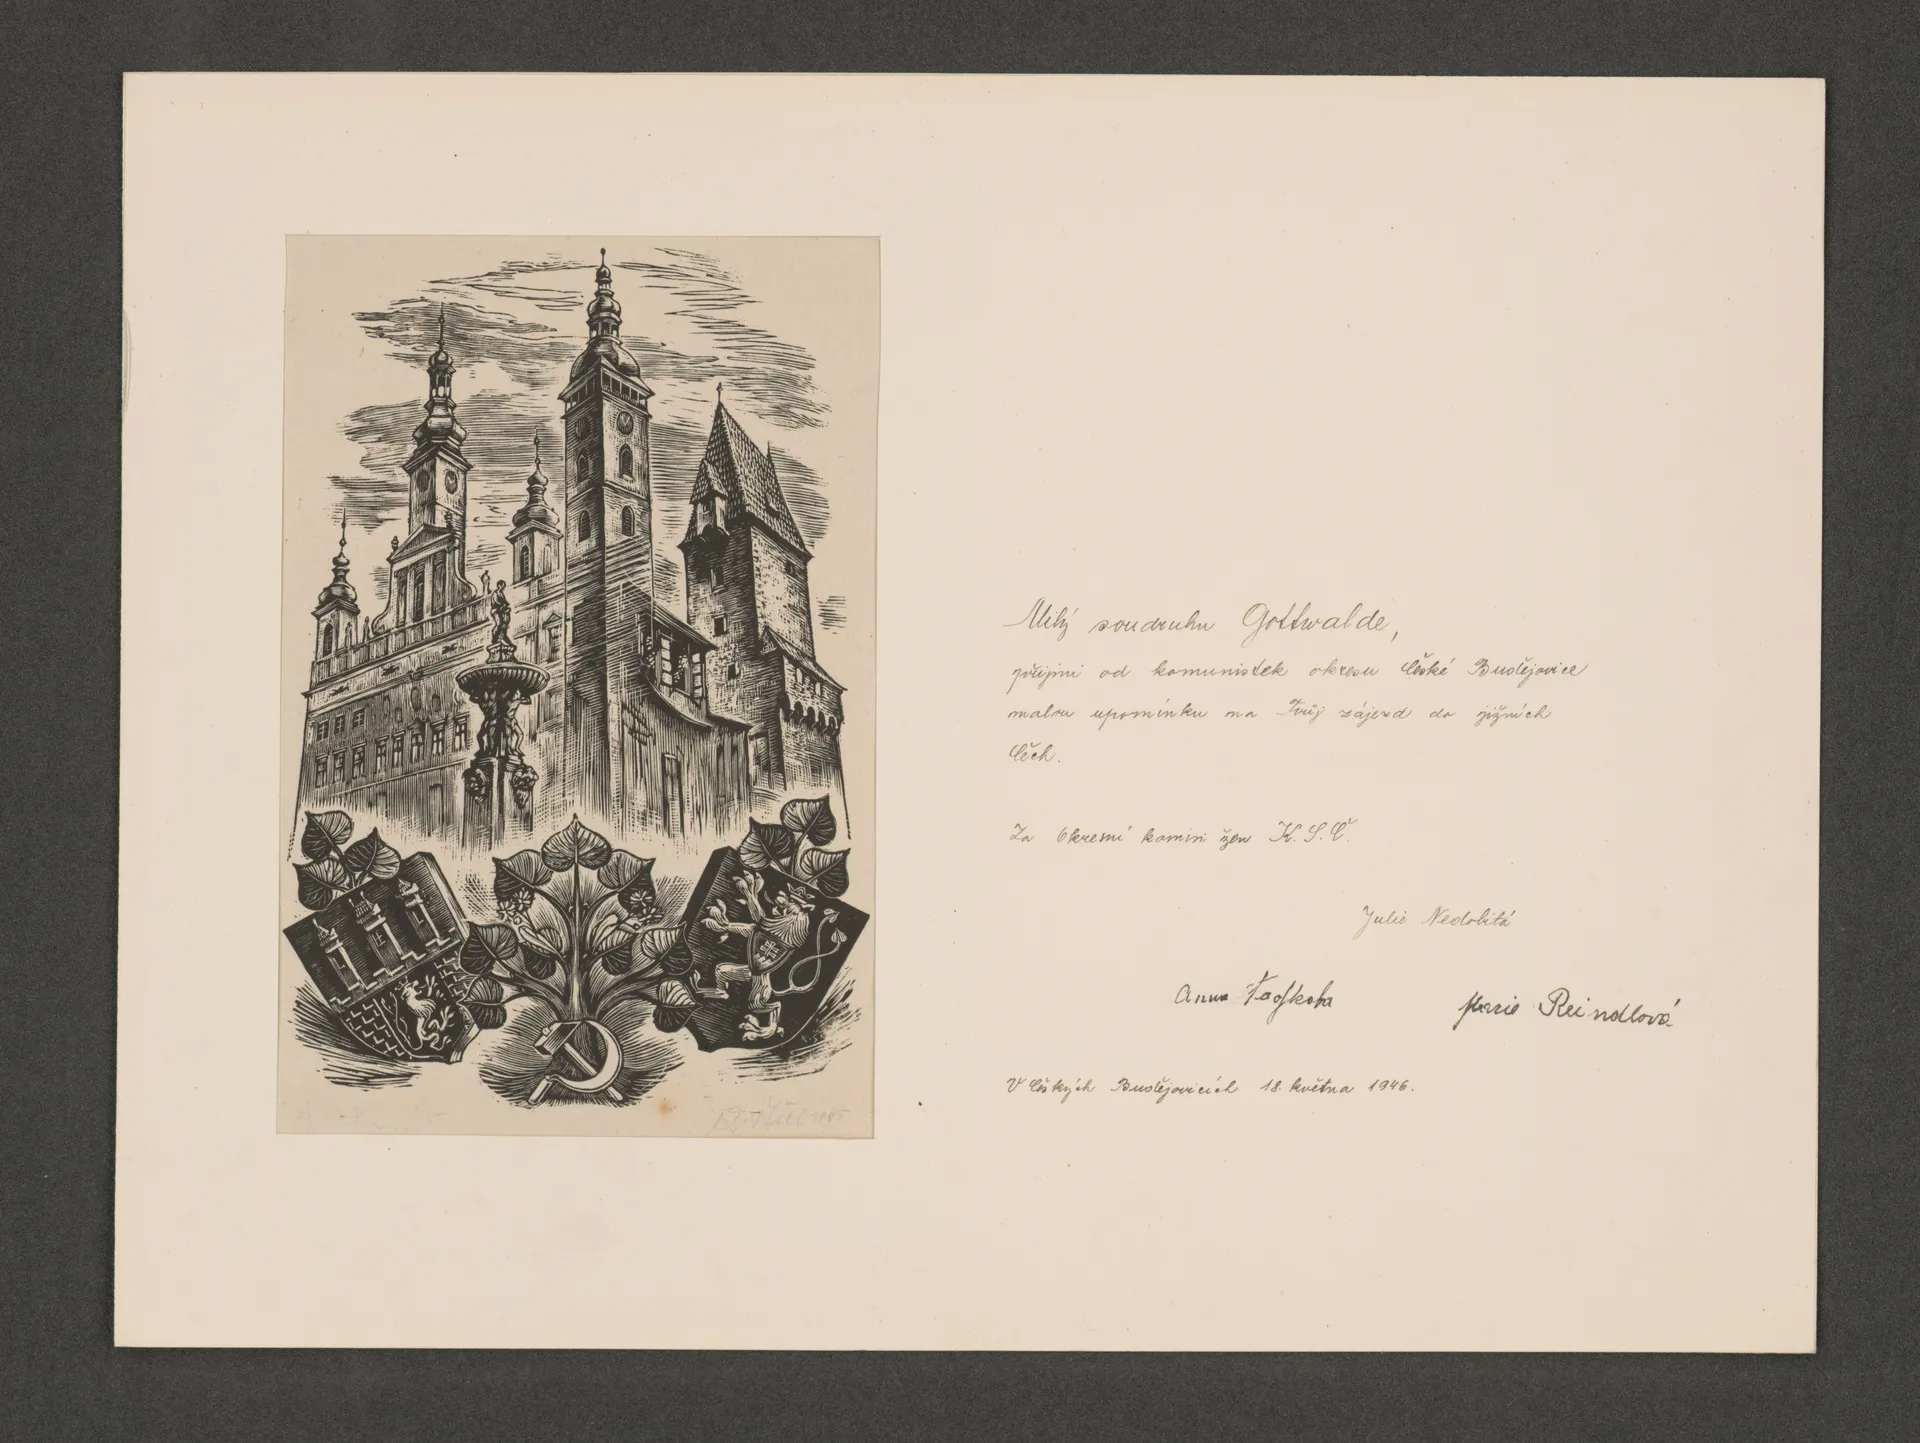 Milý soudruhu Gottwalde,
přijmi od komunistek okresu České Budějovice
malou upomínku na Tvůj zájezd do jižních
Čech.
Za Okresní komisi žen K.S.Č.
Julie Nedobitá
Anna
Marie Reindlová
V Českých Budějovicích 18. května 1946.